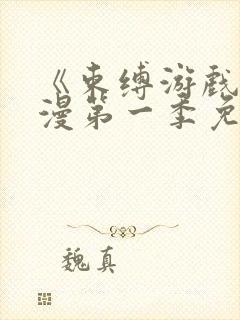 《束缚游戏
漫第一季免
魏真